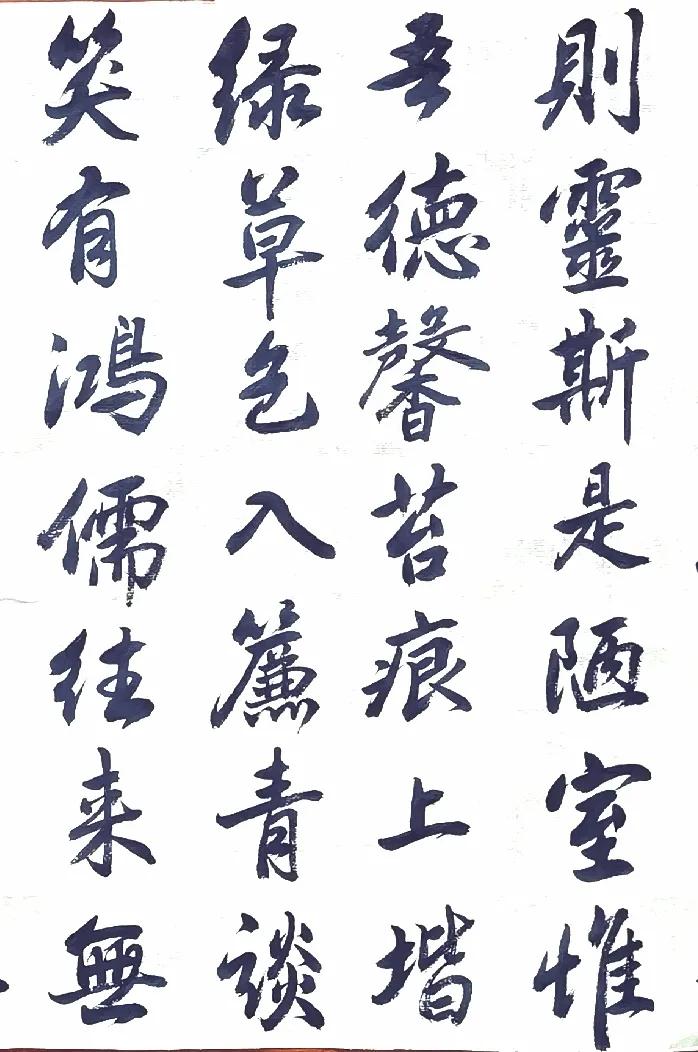 則靈斯是陋室惟
吾德馨苔痕上堦
绿草色入簾青談
笑有鴻儒往来無